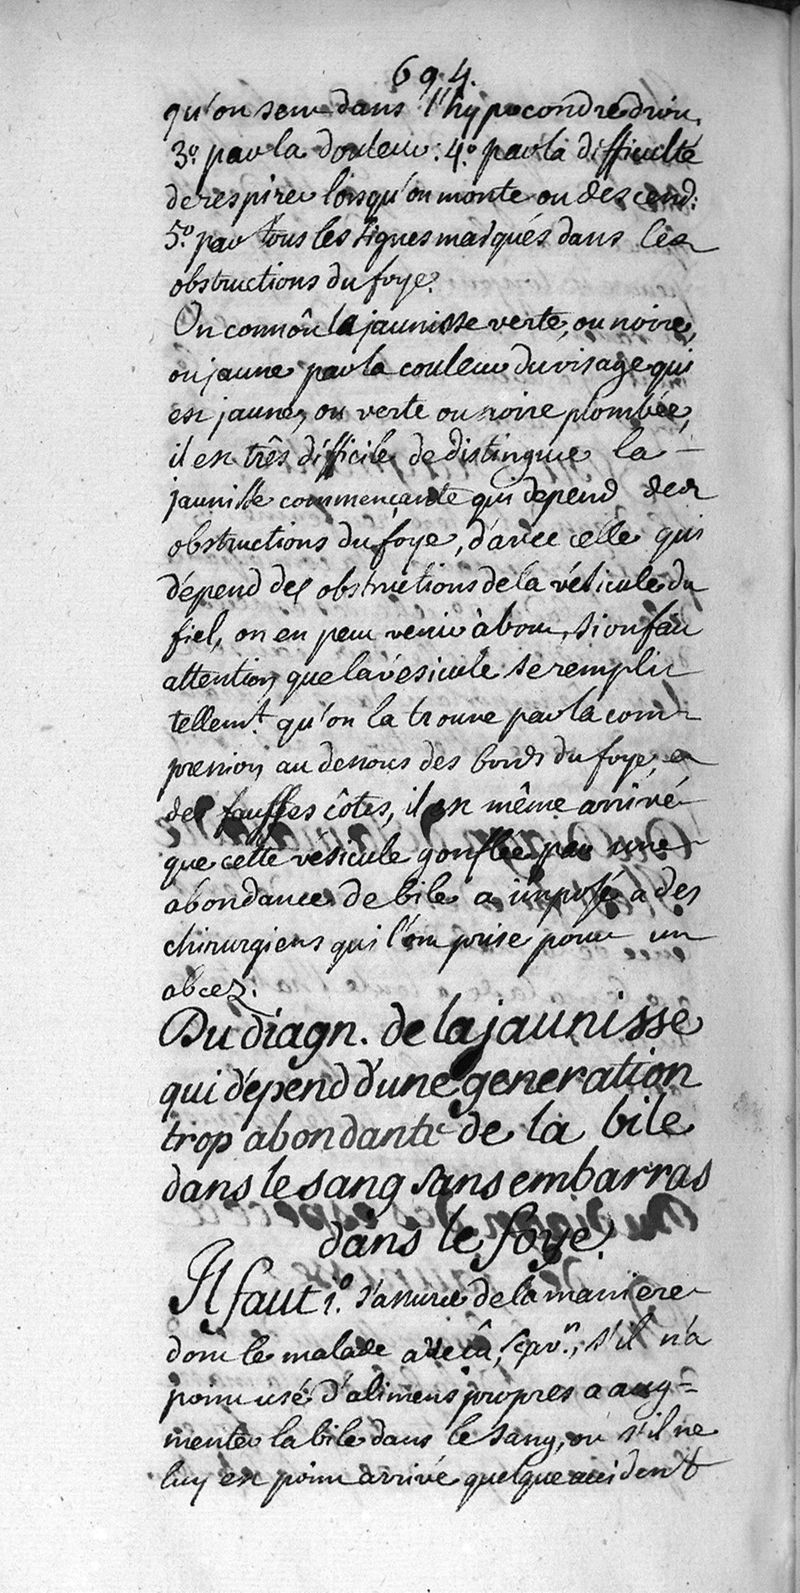 694.
qu'on sent dans l'hypocondre droit.
3.º par la douleur: 4.º par la difficulté
de respirer lorsqu'on monte ou descend:
5.º par tous les signes marqués dans les
obstructions du foye.
On connoît la jaunisse verte, ou noire,
ou jaune par la couleur du visage qui
est jaune, ou verte ou noire plombée,
il est très difficile de distinguer la
jaunisse commençante qui depend des
obstructions du foye, d'avec celle qui
dépend des obstructions de la vésicule du
fiel, on en peut venir à bout, si on fait
attention que la vésicule se remplit
tellemt. qu'on la trouve par la com-
pression au dessous des bords du foye, et
des fausses côtes, il est même arrivé
que cette vésicule gonflée par une
abondance de bile a imposé a des
chirurgiens qui l'ont prise pour un
abcez.
Du diagn. de la jaunisse
qui dépend d'une generation
trop abondante de la bile
dans le sang sans embarras
dans le foye.
Il faut 1.º s'assurer de la maniere
dont le malade a vécû, sçavn., s'il n'a
point usé d'alimens propres a aug=
menter la bile dans le sang, ou s'il ne
luy est point arrivé quelque accident